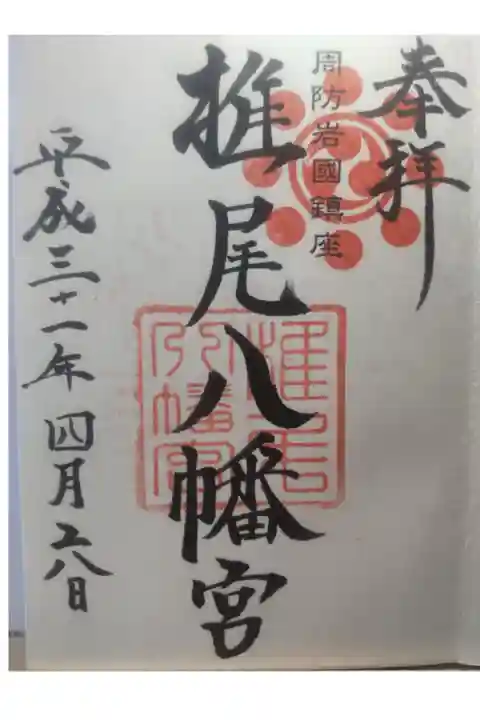 奉拝
周防岩國鎮座
椎尾八幡宮
椎尾八幡宮
平成三十一年四月廿八日